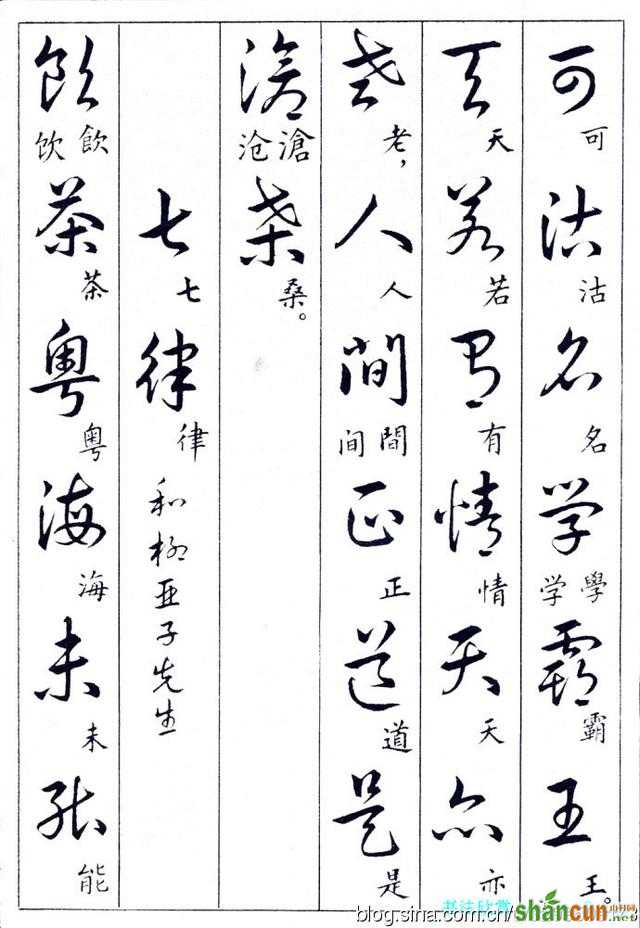 可沽名学霸王
可沽名学學霸王。
天若有情天亦
天若有情天亦
老人间正道是
老,人间間正道是
沧桑
沧滄桑。
七律 和柳亚子先生
七律
饮茶粤海未能
饮飲茶粤海未能
书法欣赏
shancun
blog.sina.com.cn